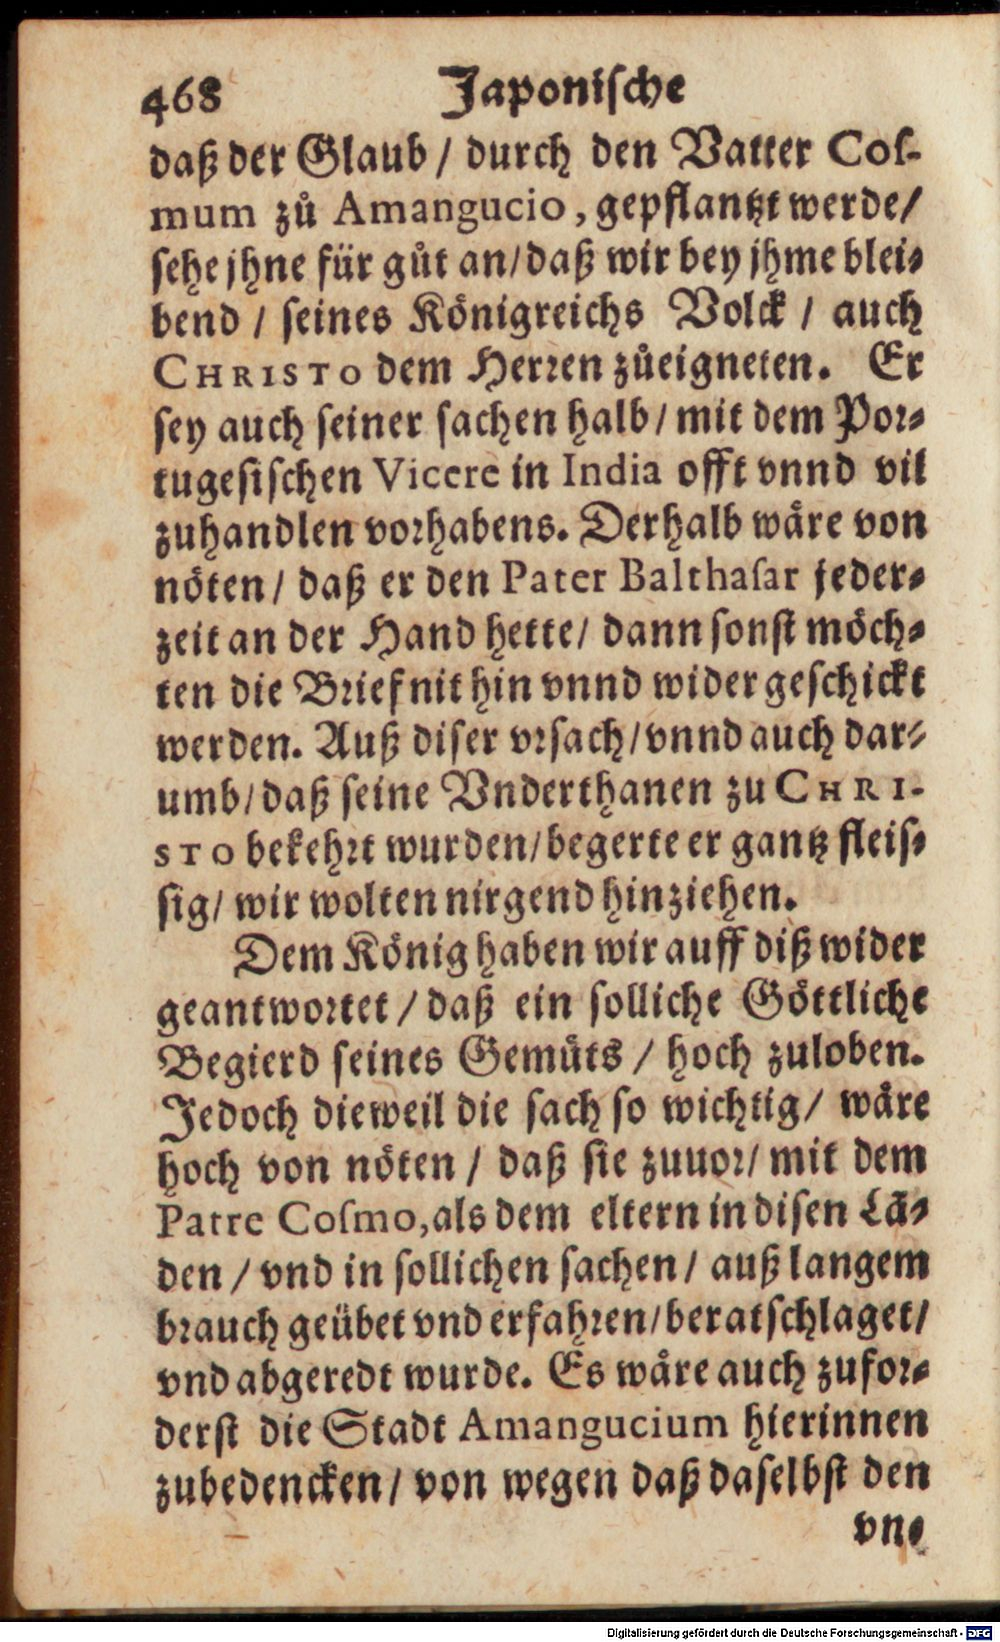 468 Japonische
daß der Glaub / durch den Vatter Coſ-
mum zů Amangucio, gepflantzt werde/
sehe jhne für gůt an/daß wir bey jhme blei-
bend / seines Königreichs Volck / auch
CHRISTO dem Herren zůeigneten. Er
sey auch seiner sachen halb/ mit dem Por-
tugesischen Vicere in India offt vnnd vil
zuhandlen vorhabens. Derhalb wäre von
nöten/ daß er den Pater Balthaſar jeder-
zeit an der Hand hette/ dann sonst möch-
ten die Brief nit hin vnnd wider geschickt
werden. Auß diser vrsach/vnnd auch dar-
umb/daß seine Vnderthanen zu CHRI-
STO bekehrt wurden/begerte er gantz fleis-
sig/ wir wolten nirgend hinziehen.
Dem König haben wir auff diß wider
geantwortet / daß ein solliche Göttliche
Begierd seines Gemüts / hoch zuloben.
Jedoch dieweil die sach so wichtig/ wäre
hoch von nöten / daß sie zuuor/ mit dem
Patre Coſmo, als dem eltern in disen Lā-
den / vnd in sollichen sachen/ auß langem
brauch geübet vnd erfahren/beratschlaget/
vnd abgeredt wurde. Es wäre auch zufor-
derst die Stadt Amangucium hierinnen
zubedencken/ von wegen daß daselbst den
vn-
Digitalisierung gefördert durch die Deutsche Forschungsgemeinschaft - DFG